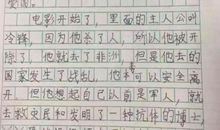 爱国。
电影开始了，里面的主人公叫
冷锋，因为他杀了人，所以他被开
除了，他就去了非洲，但是他去的
国家发生了战乱，他本可以安全离
开，但他想起自己以前是军人，就
去救灾民和发明了一种抗体的博士